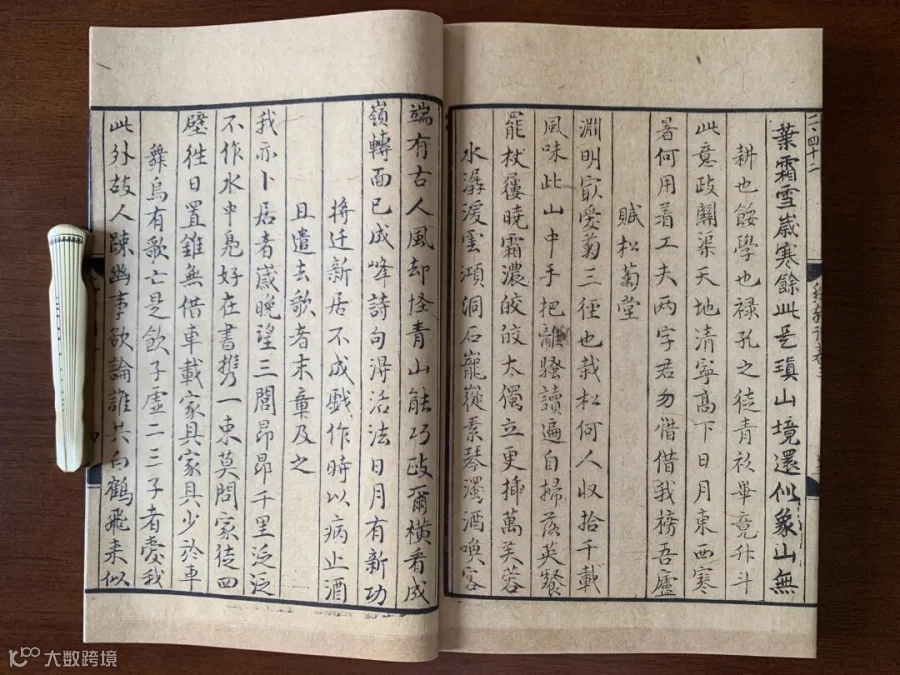 二、四十二
葉霜雪歲寒餘此是瑱山境還似象山無
耕也餒學也禄孔之徒青衫畢竟升斗
此意政關渠天地清寧高下日月東西寒
暑何用着工夫两字君勿惜借我榜吾廬
賦松菊堂
淵明㝡愛菊三徑也栽松何人收拾千載
風味此山中手把離騷讀遍自掃落英餐
罷杖屨曉霜濃皎皎太獨立更插萬芙蓉
水潺湲雲澒洞石巃嵸素琴濁酒喚客
端有古人風却怪青山能巧政爾橫看成
嶺轉面已成峰詩句得活法日月有新功
將迁新居不成戲作時以病止酒
且遣去歌者末章及之
我亦卜居者歲晚望三閭昂昂千里泛泛
不作水中鳧好在書攜一束莫問家徒四
壁往日置錐無借車載家具家具少於車
舞烏有歌亡是飲子虛二三子者愛我
此外故人疎幽事欲論誰共白鶴飛来似
大数跨境